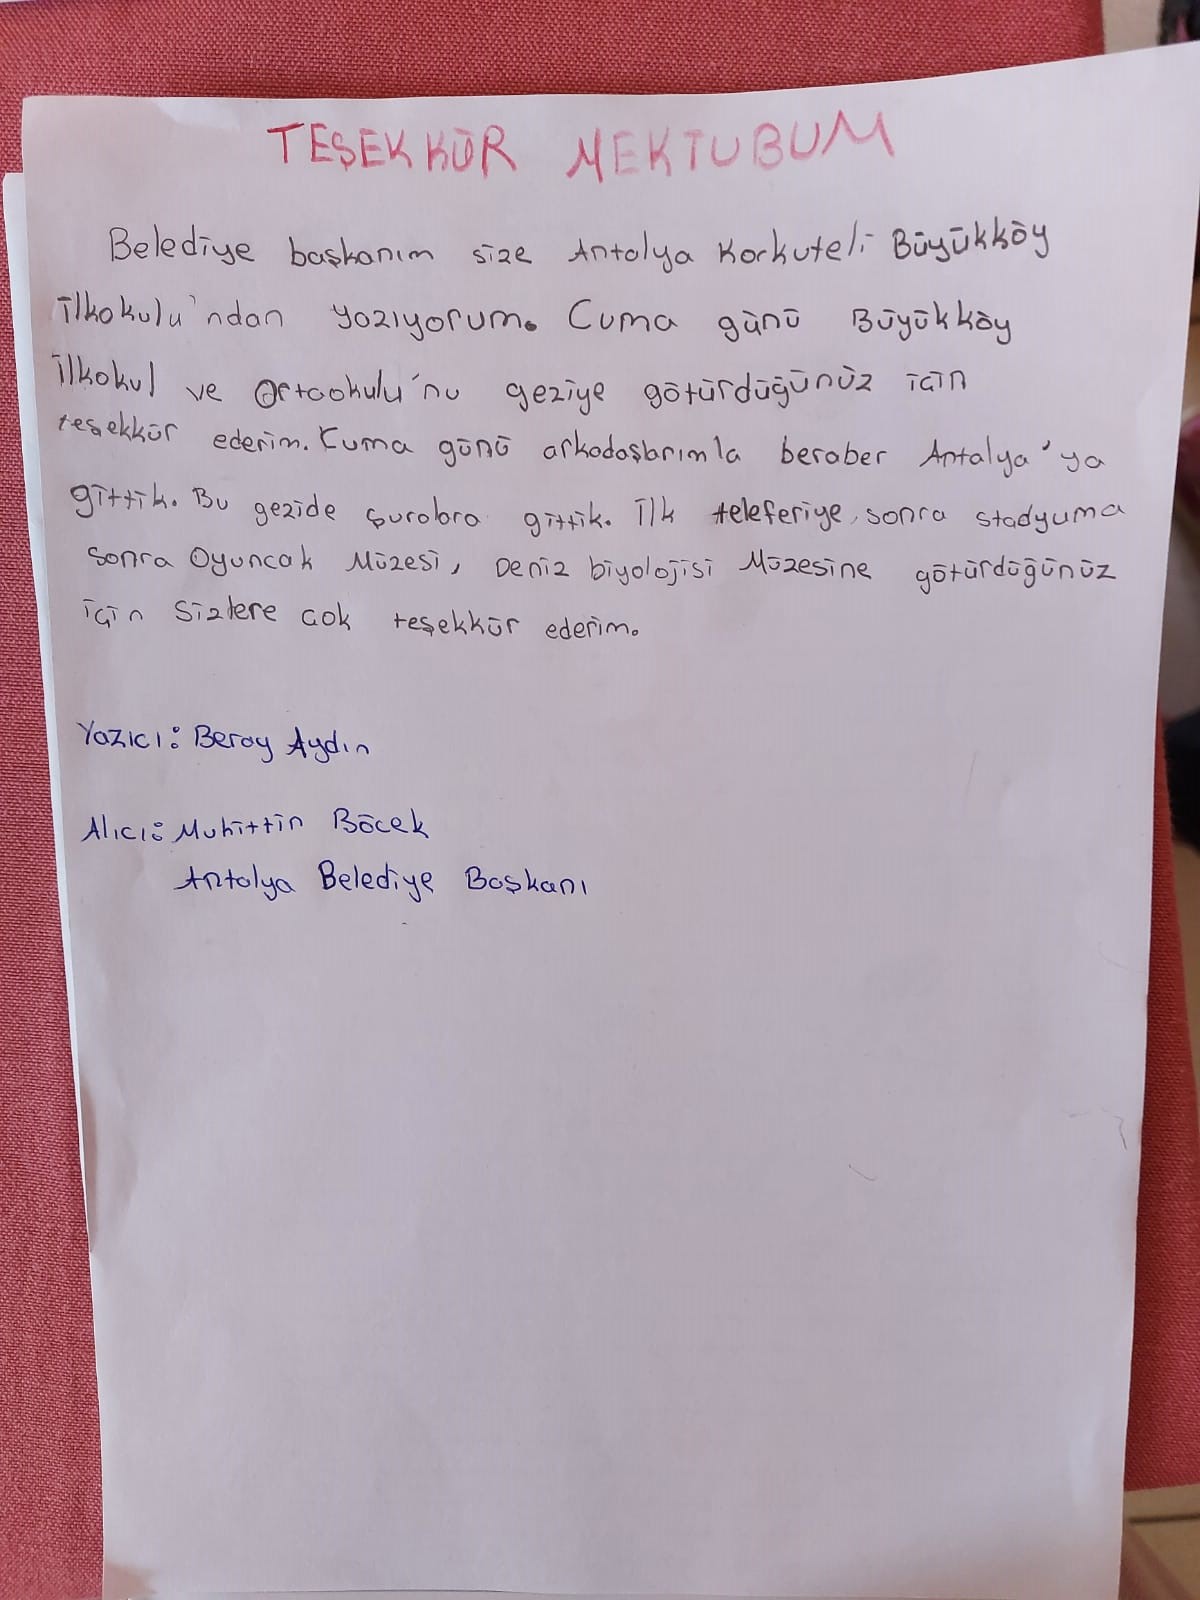 TEŞEKKÜR MEKTUBUM
Belediye başkanım size Antalya Korkuteli Büyükköy
İlkokulu'ndan yazıyorum. Cuma günü Büyükköy
İlkokul ve Ortaokulu'nu geziye götürdüğünüz için
teşekkür ederim. Cuma günü arkadaşlarımla beraber Antalya'ya
gittik. Bu gezide şuralara gittik. İlk teleferiye, sonra stadyuma
sonra Oyuncak Müzesi, Deniz biyolojisi Müzesine götürdüğünüz
için sizlere çok teşekkür ederim.
Yazıcı: Beray Aydın
Alıcı: Muhittin Böcek
Antalya Belediye Başkanı